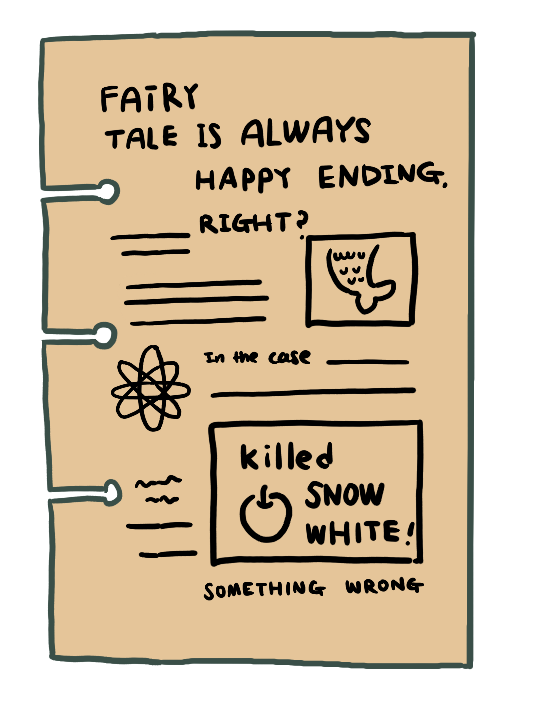 FAIRY
TALE IS ALWAYS
HAPPY ENDING.
RIGHT?
In the case
killed
SNOW
WHITE!
SOMETHING WRONG